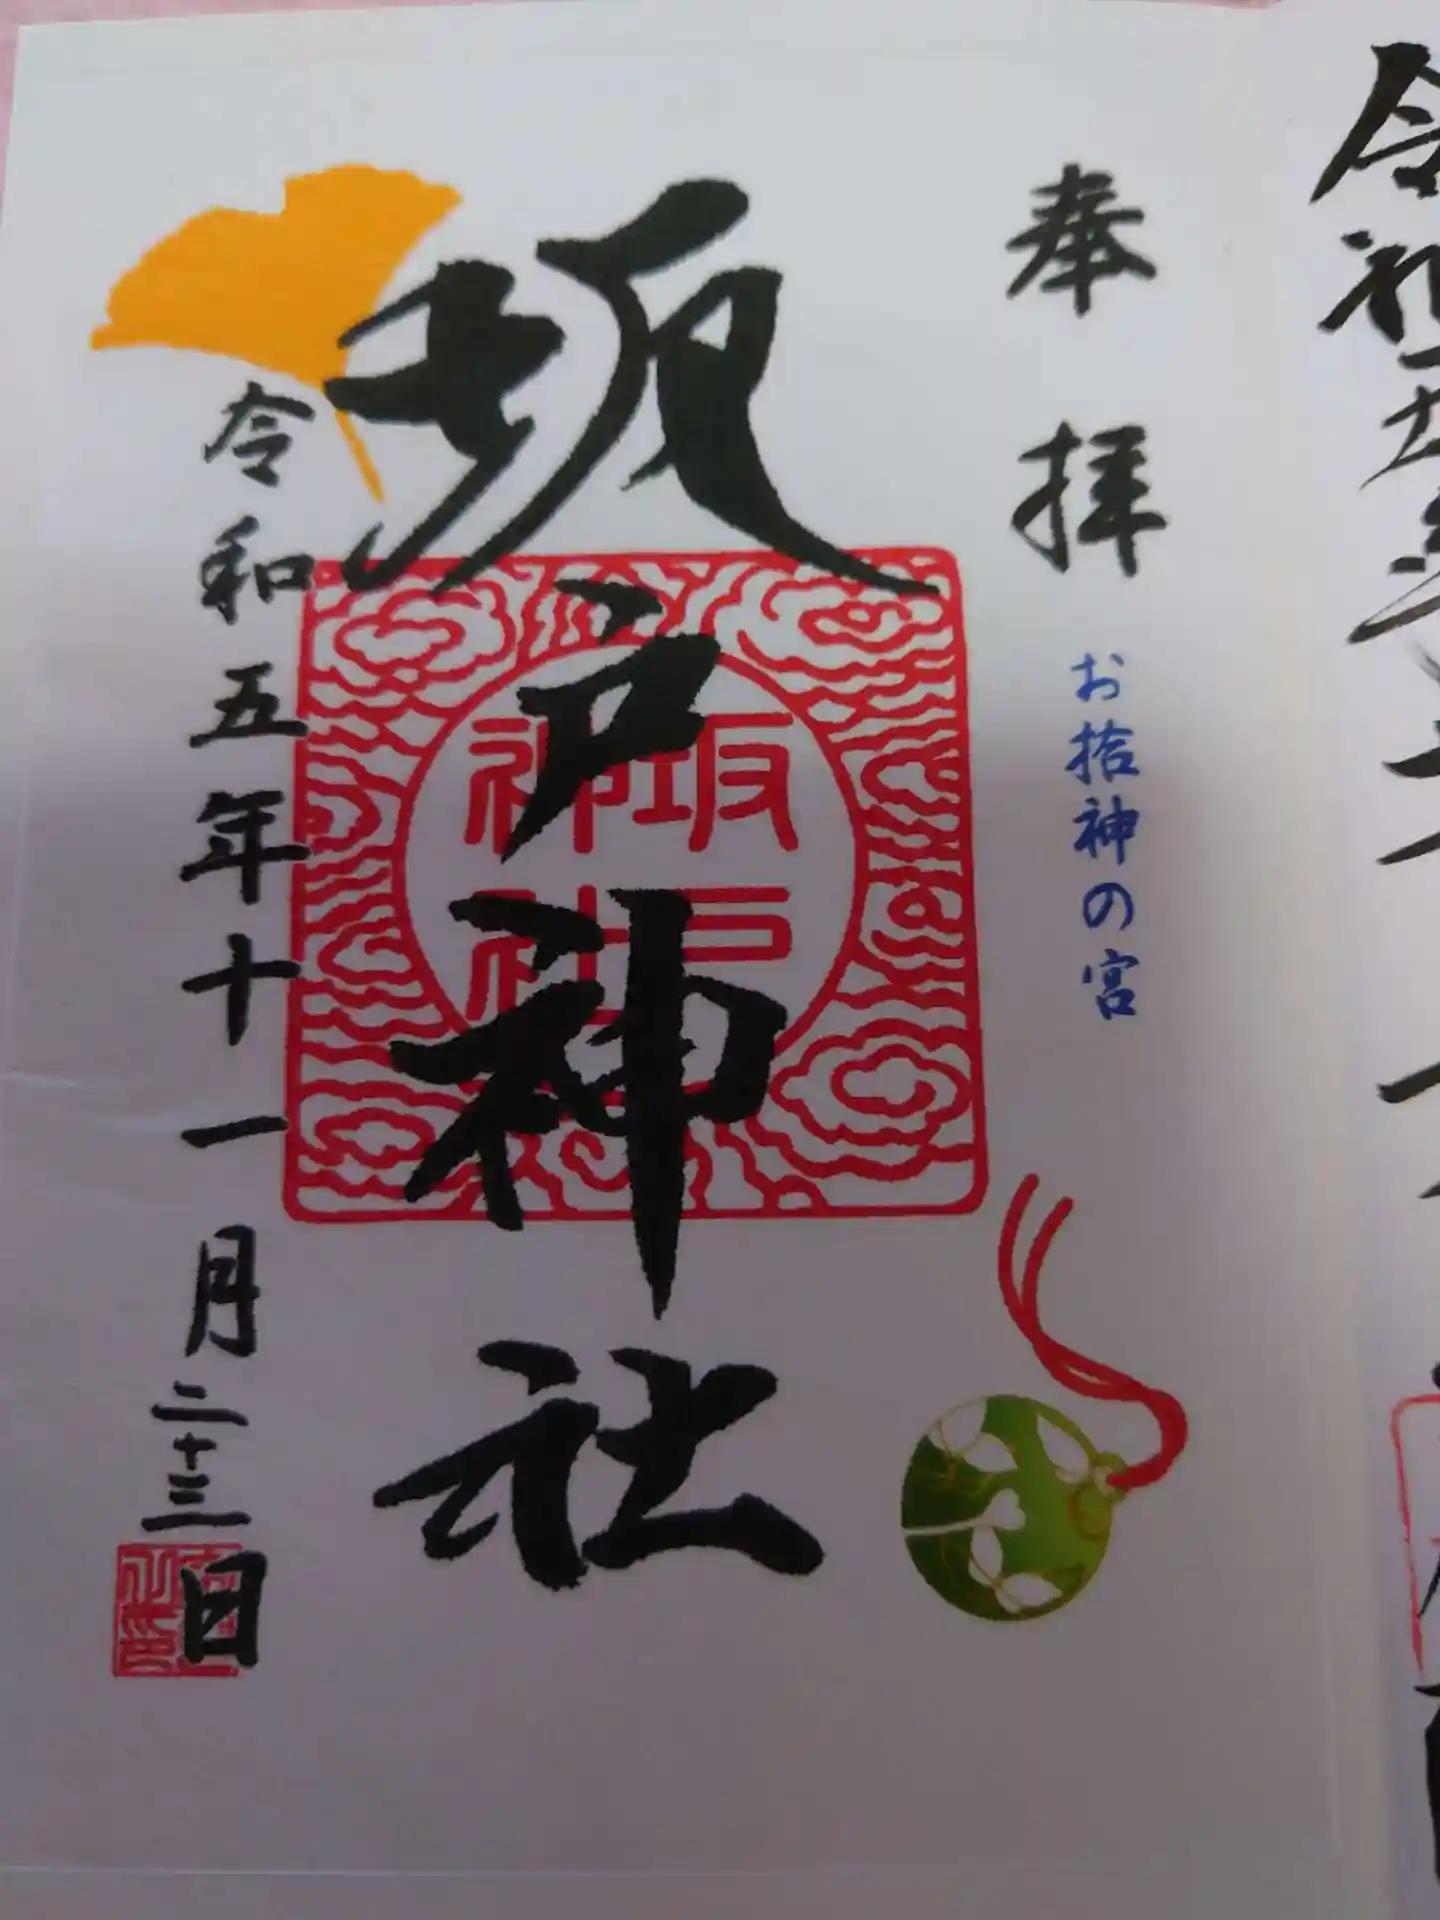 奉拝
お拾神の宮
坂戸神社
坂戸
神社
令和五年十一月二十三日